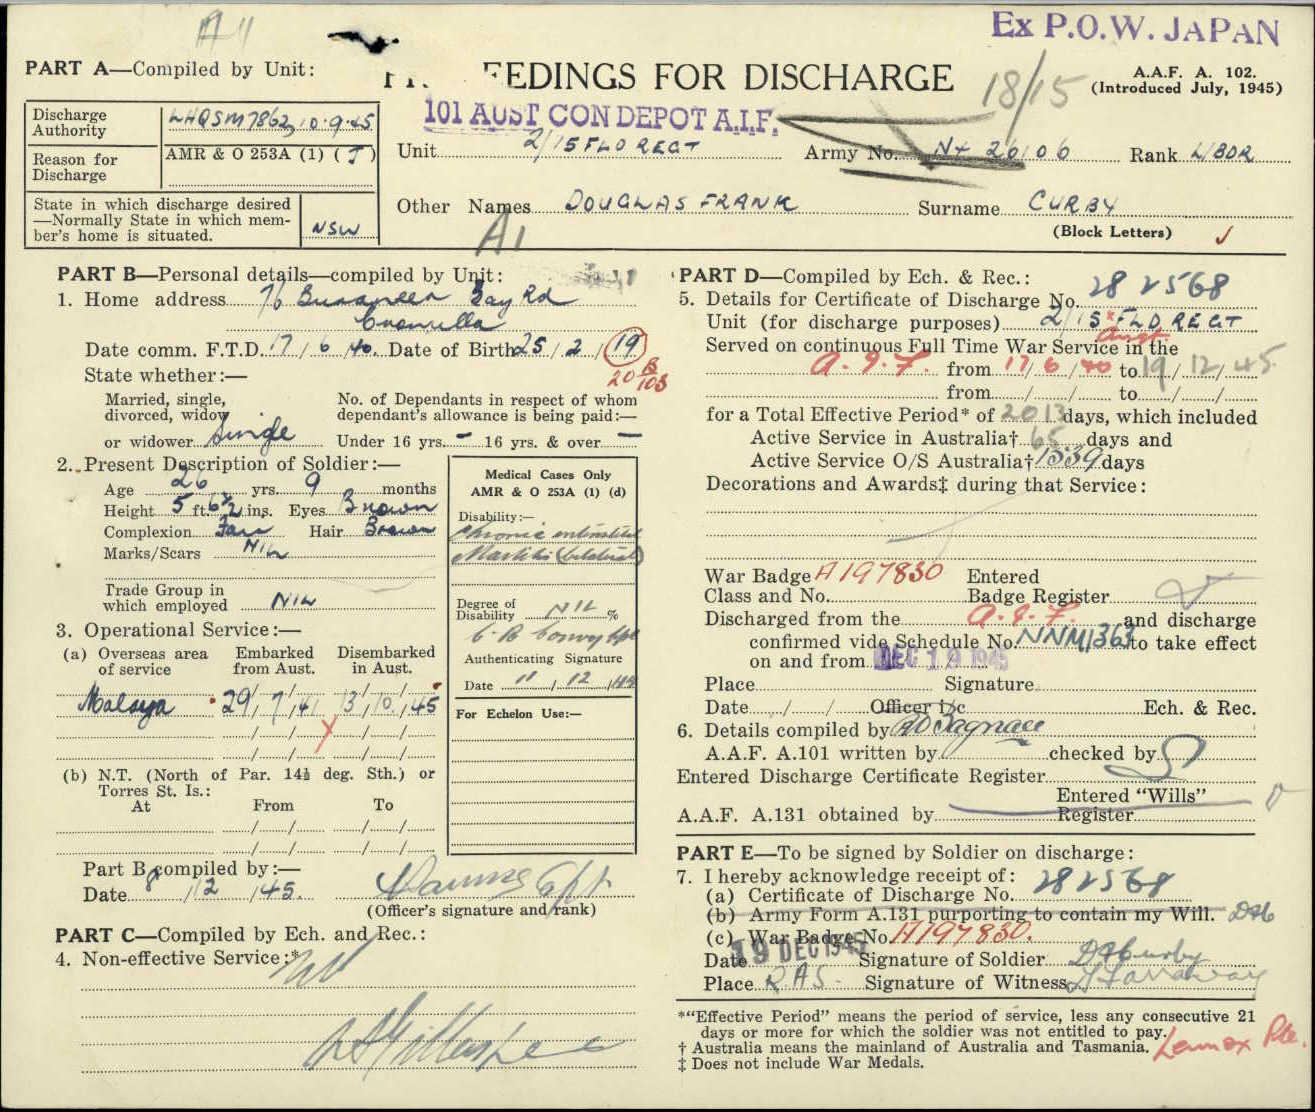 Ex P.O.W. JAPAN
PART A—Compiled by Unit:
EEDINGS FOR DISCHARGE
18/15
A.A.F. A. 102.
(Introduced July, 1945)
101 AUST CON DEPOT A.I.F.
Discharge Authority LHQSM7862, 10.9.45
Reason for Discharge AMR & O 253A (1) (J)
State in which discharge desired
—Normally State in which mem-
ber's home is situated. NSW
Unit 2/15 FLD REGT Army No. NX 26106 Rank L/BDR
Other Names DOUGLAS FRANK Surname CURBY
(Block Letters)
A1
PART B—Personal details—compiled by Unit:
1. Home address 76 Bay Rd
Cronulla
Date comm. F.T.D. 17/6/40. Date of Birth 25/2/19
20 B/103
State whether:—
Married, single,
divorced, widow
or widower Single
No. of Dependants in respect of whom
dependant's allowance is being paid:—
Under 16 yrs. – 16 yrs. & over –
2. Present Description of Soldier:—
Age 26 yrs. 9 months
Height 5 ft. 6½ ins. Eyes Brown
Complexion Fair Hair Brown
Marks/Scars NIL
Trade Group in
which employed NIL
Medical Cases Only
AMR & O 253A (1) (d)
Disability:—
Chronic interstitial
Mastitis (bilateral)
Degree of
Disability NIL %
Authenticating Signature
Date 11/12/
For Echelon Use:—
3. Operational Service:—
(a) Overseas area of service Embarked from Aust. Disembarked in Aust.
Malaya 29/7/41 13/10/45
(b) N.T. (North of Par. 14½ deg. Sth.) or
Torres St. Is.:—
At From To
Part B compiled by:—
Date 8/12/45.
(Officer's signature and rank)
PART C—Compiled by Ech. and Rec.:
4. Non-effective Service:*
Nil
PART D—Compiled by Ech. & Rec.:
5. Details for Certificate of Discharge No. 282568
Unit (for discharge purposes) 2/15 FLD REGT
Aust.
Served on continuous Full Time War Service in the
A.I.F. from 17/6/40 to 19/12/45.
from / / to / /
for a Total Effective Period* of 2013 days, which included
Active Service in Australia† 65 days and
Active Service O/S Australia† 1539 days
Decorations and Awards‡ during that Service:
War Badge Class and No. A197830 Entered Badge Register
Discharged from the A.I.F. and discharge
confirmed vide Schedule No. NNM1363 to take effect
on and from DEC 19 1945
Place Signature
Date / / Officer i/c Ech. & Rec.
6. Details compiled by
A.A.F. A.101 written by checked by
Entered Discharge Certificate Register
A.A.F. A.131 obtained by Entered "Wills" Register
PART E—To be signed by Soldier on discharge:
7. I hereby acknowledge receipt of:
(a) Certificate of Discharge No. 282568
(b) Army Form A.131 purporting to contain my Will.
(c) War Badge No. A197830.
Date 19 DEC 1945 Signature of Soldier DFCurby
Place RAS Signature of Witness
*"Effective Period" means the period of service, less any consecutive 21
days or more for which the soldier was not entitled to pay.
† Australia means the mainland of Australia and Tasmania.
‡ Does not include War Medals.